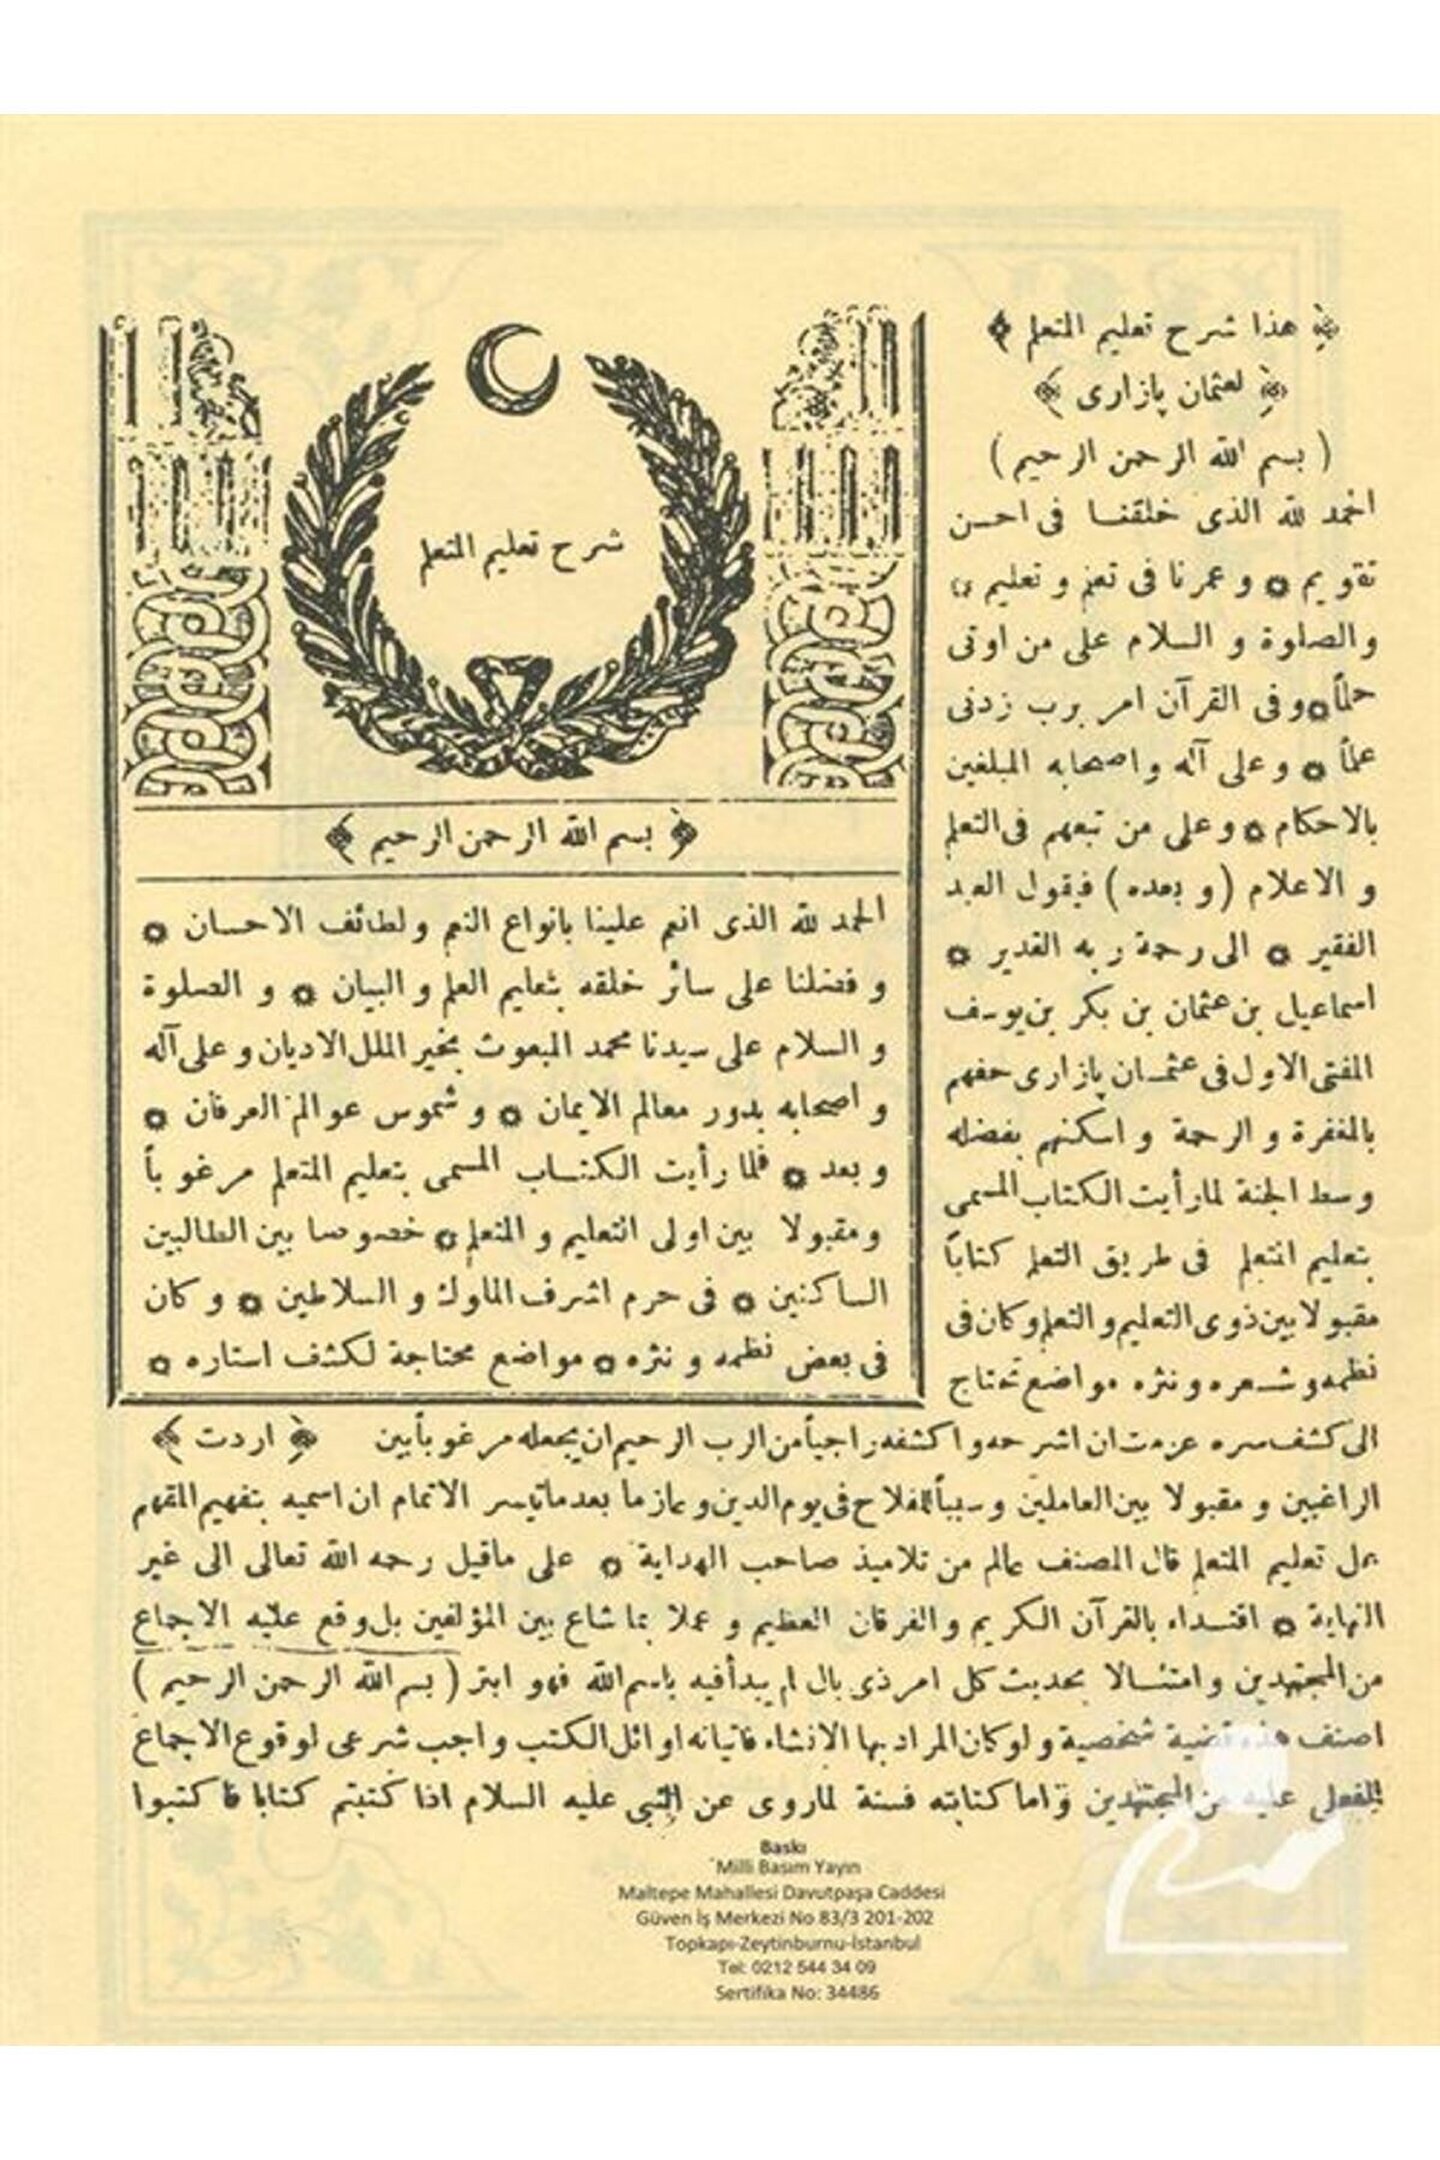 ﴿ هذا شرح تعليم المتعلم ﴾
﴿ لعثمان پازارى ﴾
( بسم الله الرحمن الرحيم )
الحمد لله الذى خلقنا فى احسن
تقويم ۞ و عمرنا فى تعلم و تعليم
والصلوة و السلام على من اوتى
حلماً ۞ وفى القرآن امر برب زدنى
علماً ۞ و على آله و اصحابه المبلغين
بالاحكام ۞ وعلى من تبعهم فى التعلم
و الاعلام ( و بعده ) فيقول العبد
الفقير ۞ الى رحمة ربه القدير ۞
اسماعيل بن عثمان بن بكر بن يوسف
المفتى الاول فى عثمان پازارى حفهم
بالمغفرة و الرحمة و اسكنهم بفضله
وسط الجنة لما رأيت الكتاب المسمى
بتعليم المتعلم فى طريق التعلم كتاباً
مقبولا بين ذوى التعليم و التعلم وكان فى
نظمه و شعره و نثره مواضع تحتاج
شرح تعليم المتعلم
﴿ بسم الله الرحمن الرحيم ﴾
الحمد لله الذى انعم علينا بانواع النعم ولطائف الاحسان ۞
و فضلنا على سائر خلقه بتعليم العلم و البيان ۞ و الصلوة
و السلام على سيدنا محمد المبعوث بخير الملل الاديان و على آله
و اصحابه بدور معالم الايمان ۞ و شموس عوالم العرفان ۞
و بعد ۞ فلما رأيت الكتاب المسمى بتعليم المتعلم مرغوباً
ومقبولا بين اولى التعليم و المتعلم ۞ خصوصا بين الطالبين
الساكنين ۞ فى حرم اشرف الملوك و السلاطين ۞ و كان
فى بعض نظمه و نثره ۞ مواضع محتاجة لكشف استاره ۞
الى كشف سره عزمت ان اشرحه و اكشفه راجياً من الرب الرحيم ان يجعله مرغوباً بين ﴿ اردت ﴾
الراغبين و مقبولا بين العاملين و سبباً للفلاح فى يوم الدين و عازما بعد ماتيسر الاتمام ان اسميه بتفهيم المتفهم
تعليم المتعلم قال المصنف عالم من تلاميذ صاحب الهداية ۞ على ماقيل رحمه الله تعالى الى غير
النهاية ۞ اقتداء بالقرآن الكريم والفرقان العظيم و عملا بما شاع بين المؤلفين بل وقع عليه الاجماع
من المجتهدين و امتثالا بحديث كل امر ذى بال لم يبدأ فيه باسم الله فهو ابتر ( بسم الله الرحمن الرحيم )
اصنف هذه قضية شخصية ولو كان المراد بها الانشاء فاتيانه اوائل الكتب واجب شرعى لوقوع الاجماع
الفعلى عليه من المجتهدين واما كتابته فسنة لما روى عن النبى عليه السلام اذا كتبتم كتابا فاكتبوا
Baskı
Milli Basım Yayın
Maltepe Mahallesi Davutpaşa Caddesi
Güven İş Merkezi No 83/3 201-202
Topkapı-Zeytinburnu-İstanbul
Tel: 0212 544 34 09
Sertifika No: 34486